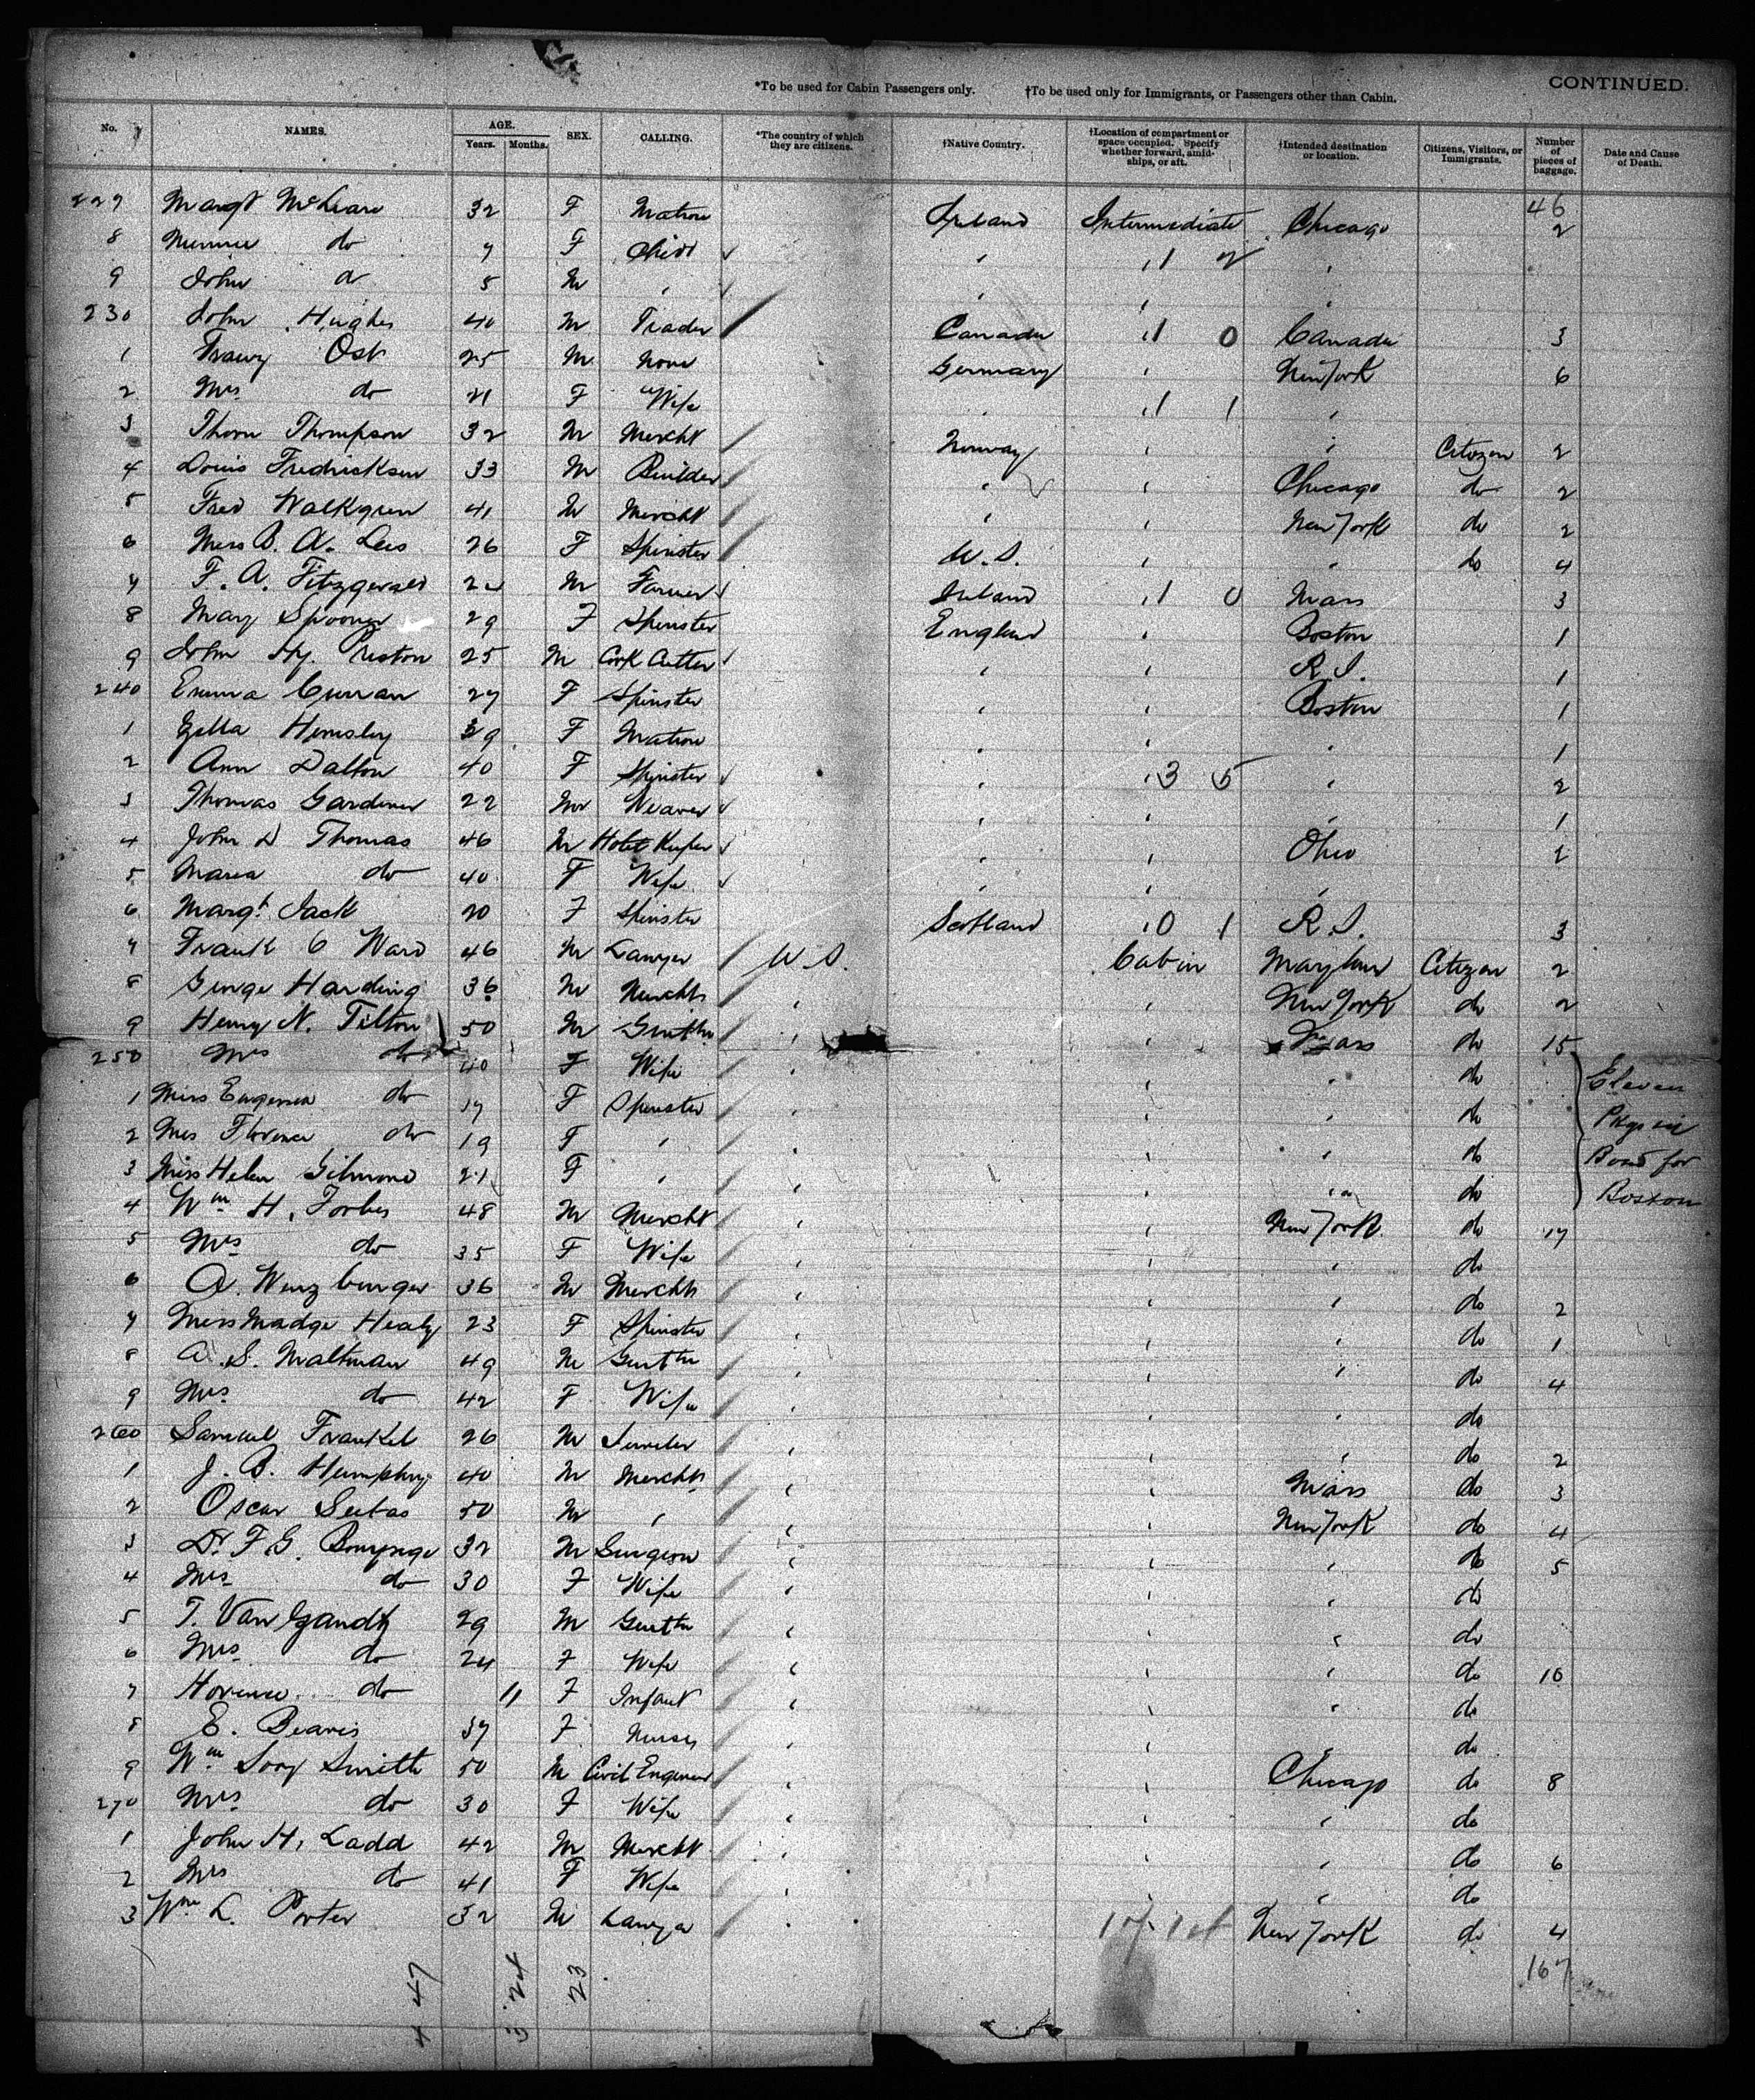 CONTINUED.
*To be used for Cabin Passengers only. †To be used only for Immigrants, or Passengers other than Cabin.
No. NAMES. AGE. Years. Months. SEX. CALLING. *The country of which they are citizens. †Native Country. †Location of compartment or space occupied. Specify whether forward, amidships, or aft. †Intended destination or location. Citizens, Visitors, or Immigrants. Number of pieces of baggage. Date and Cause of Death.
46
227 Margt 32 F Matron Ireland Intermediate Chicago 2
8 Minnie do 7 F Child " " 1 2 "
9 John do 5 M " " " "
230 John Hughes 40 M Trader Canada " 1 0 Canada 3
1 Ost 25 M None Germany " New York 6
2 Mrs do 21 F Wife " " 1 1 "
3 Thorn Thompson 32 M Mercht Norway " " Citizen 2
4 Louis Fredricksen 33 M Builder " " Chicago do 2
5 Fred Walkgren 41 M Mercht " " New York do 2
6 Miss B. A. Lees 26 F Spinster U.S. " " do 4
7 F. A. Fitzgerald M Farmer Ireland " 1 0 Mass 3
8 Mary Spooner 29 F Spinster England " Boston 1
9 John Hy. Preston 25 M Cork Cutter " " R.I. 1
240 Emma Curran 27 F Spinster " " Boston 1
1 Hemsley 39 F Matron " " " 1
2 Ann Dalton 40 F Spinster " " 3 5 " 2
3 Thomas Gardener 22 M Weaver " " " 1
4 John D Thomas 46 M Hotel Keeper " " Ohio 2
5 Maria do 40 F Wife " " "
6 Margt. Jack 20 F Spinster Scotland " 0 1 R.I. 3
7 Frank C Ward 46 M Lawyer U.S. Cabin Maryland Citizen 2
8 George Harding 36 M Merchts " " New York do 2
9 Henry N. Tilton 50 M Gentln " " Mass do 15
250 Mrs do 40 F Wife " " " do Eleven
1 Miss Eugenia do 17 F Spinster " " " do Pkgs in
2 Mis Florence do 19 F " " " " do Bond for
3 Miss Helen Gilmore 21 F " " " " do Boston
4 Wm H. Forbes 48 M Mercht " " New York do 17
5 Mrs do 35 F Wife " " " do
6 A. Wurzburger 36 M Merchts " " " do 2
7 Miss Madge Healy 23 F Spinster " " " do 1
8 A. S. Maltman 49 M Gentln " " " do 4
9 Mrs do 42 F Wife " " " do
260 Samuel Frankel 26 M Jeweler " " " do 2
1 J. B. Humphry 40 M Merchts " " Mass do 3
2 Oscar 50 M " " " New York do 4
3 Dr F. G. 32 M Surgeon " " " do 5
4 Mrs do 30 F Wife " " " do
5 T. Van Zandt 29 M Gentln " " " do
6 Mrs do 24 F Wife " " " do 10
7 Florence do 11 F Infant " " " do
8 E. Beavis 37 F Nurse " " " do
9 Wm Sooy Smith 50 M Civil Engineer " " Chicago do 8
270 Mrs do 30 F Wife " " " do
1 John H. Ladd 42 M Mercht " " " do 6
2 Mrs do 41 F Wife " " " do
3 Wm L. Porter 32 M Lawyer " " New York do 4
47 24 23 167